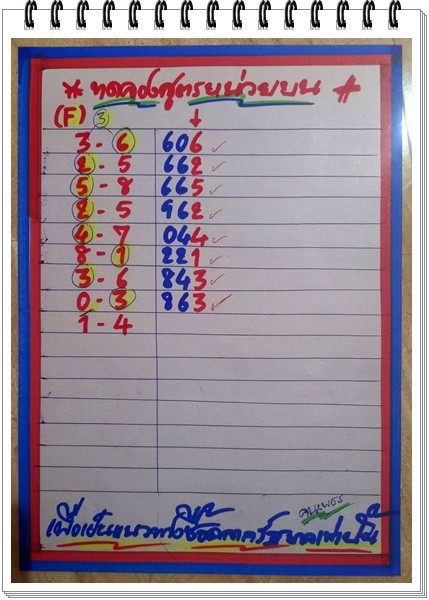 * ทดลองสูตรหน่วยบน *
(F) 3 ↓
3 - 6 606 ✓
2 - 5 662 ✓
5 - 8 665 ✓
2 - 5 962 ✓
4 - 7 044 ✓
8 - 1 221 ✓
3 - 6 843 ✓
0 - 3 863 ✓
1 - 4
เพื่อเป็นแนวทางซื้อสลากกร์รัฐบาลเท่านั้น